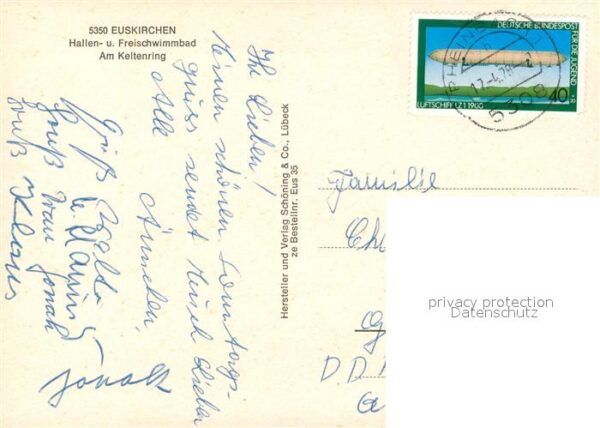 5350 EUSKIRCHEN
Hallen- u. Freischwimmbad
Am Keltenring
Ihr Lieben!
Einen schönen Sonntags-
gruss sendet Euch Lieben
Alle
Ännchen,
Gruß
Gruß Frau Jonah
Gruß Klaus
Jonah
Hersteller und Verlag Schöning & Co., Lübeck
ze Bestellnr. Eus 35
DEUTSCHE BUNDESPOST
FÜR DIE JUGEND
40
LUFTSCHIFF LZ 1 1900
RHEINB
5308
Familie
D.D.R
privacy protection
Datenschutz